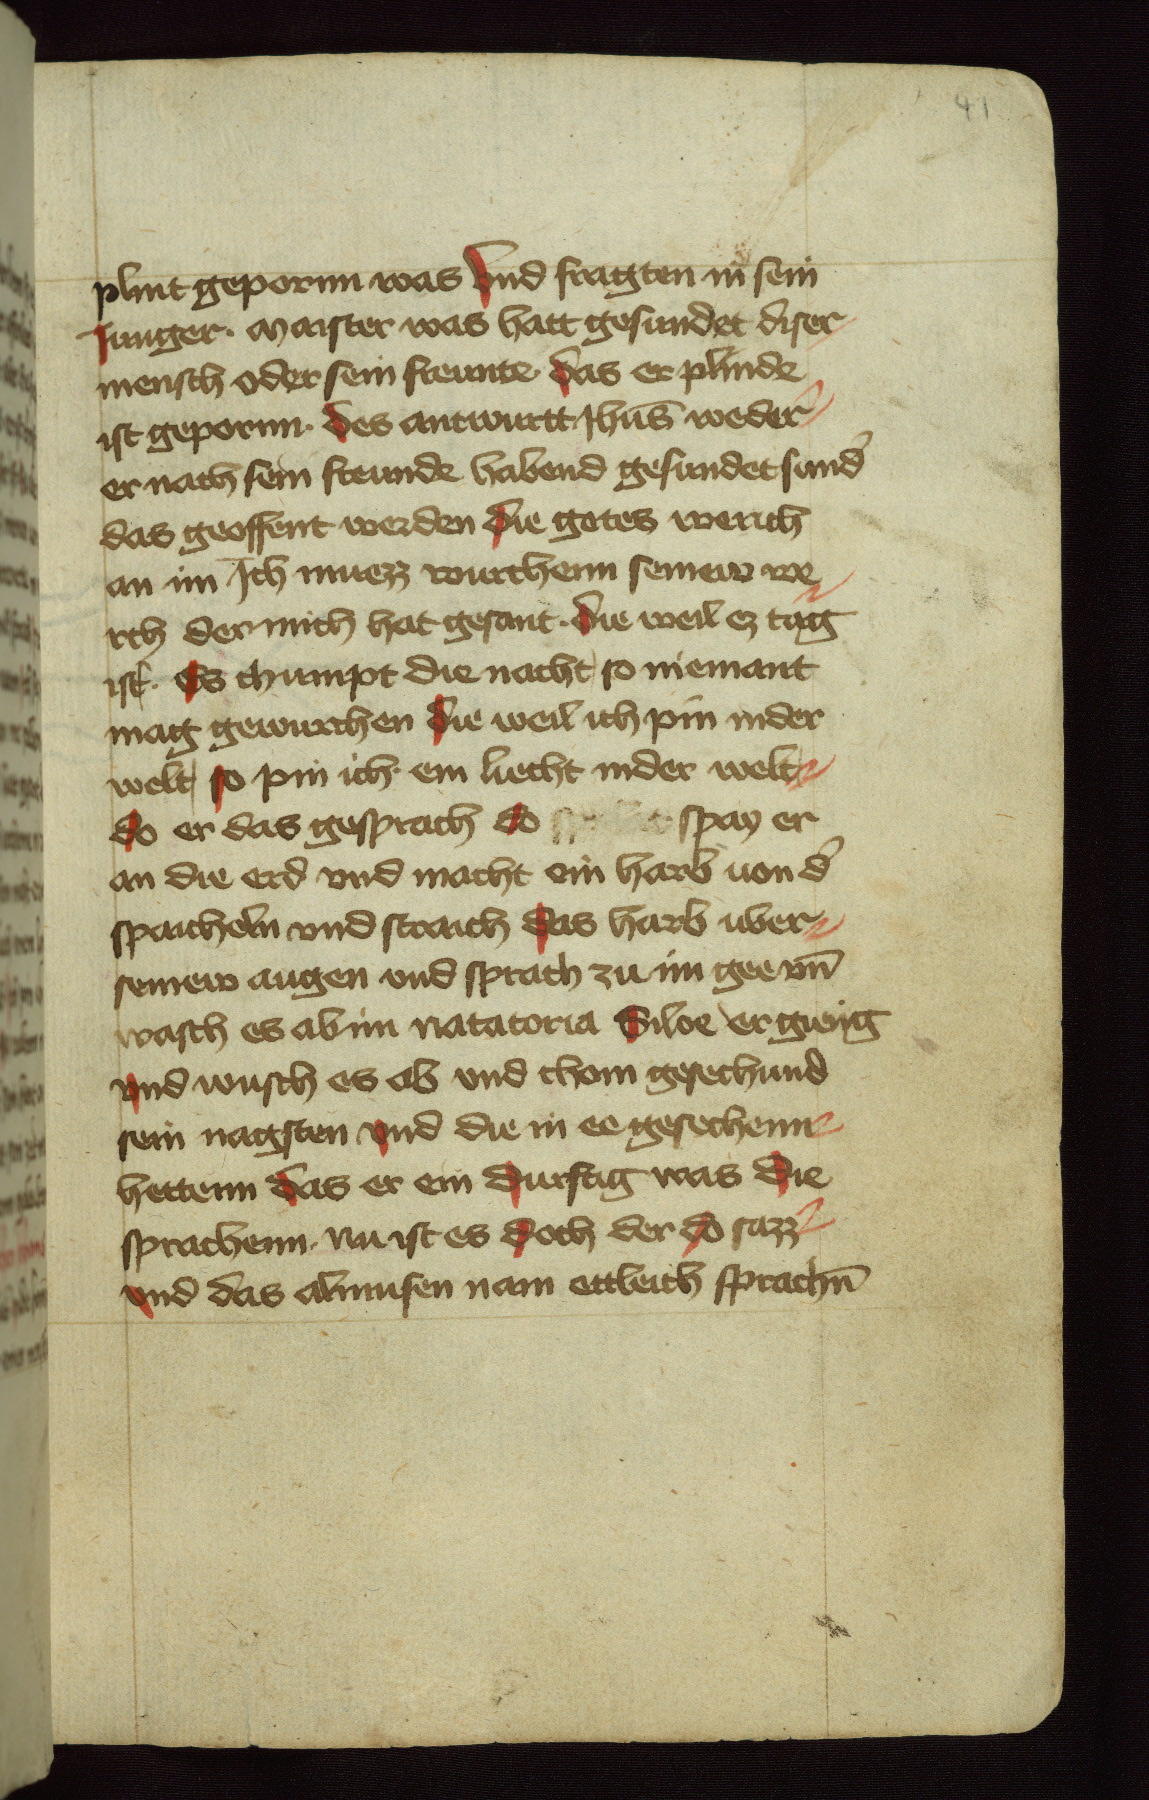 41
plint gepornn was Vnd fragten in sein
Junger. Maister was hatt gesundet diser
mensch oder sein freunte. das er plinde
ist gepornn. des antwurtt Jhus̄ weder
er nach sein freunde habend gesundet sund̾
das geoffent werden die gotes werich
an im Ich muezz wurchenn seinew we
rch der mich hat gesant. die weil ez tag
ist. Es chumpt die nacht so niemant
mag gewurchen die weil ich pin inder
welt so pin ich. ein liecht inder welt
do er das gesprach do spay er
an die erd vnd macht ein harb uon d̾
spaicheln vnd straich das harb uber
seinew augen vnd sprach zu im gee vn̄
wasch es ab im natatoria Siloe er gieng
vnd wusch es ab vnd chom gesechund
sein nagsten vnd die in ee gesechenn
hettenn das er ein durftig was Die
sprachenn. nu ist es doch der do sazz
vnd das almusen nam ettleich sprachn̄